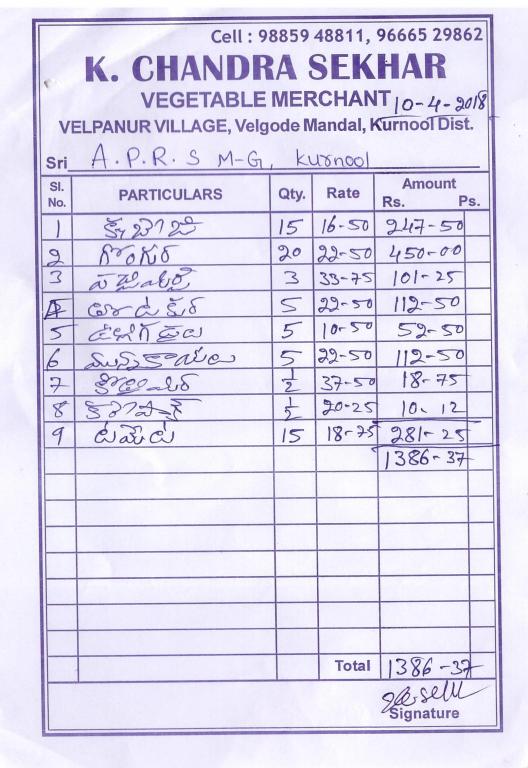 Cell : 98859 48811, 96665 29862
K. CHANDRA SEKHAR
VEGETABLE MERCHANT 10-4-2018
VELPANUR VILLAGE, Velgode Mandal, Kurnool Dist.
Sri A.P.R.S M-G, Kurnool
Sl. No. PARTICULARS Qty. Rate Amount Rs. Ps.
1 క్యాబేజి 15 16-50 247-50
2 గోంగూర 20 22-50 450-00
3 పచ్చిమిర్చి 3 33-75 101-25
4 5 22-50 112-50
5 ఉల్లిగడ్డలు 5 10-50 52-50
6 మునక్కాయలు 5 22-50 112-50
7 కొత్తిమీర ½ 37-50 18-75
8 ½ 20-25 10.12
9 టమోటా 15 18-75 281-25
1386-37
Total 1386-37
Signature